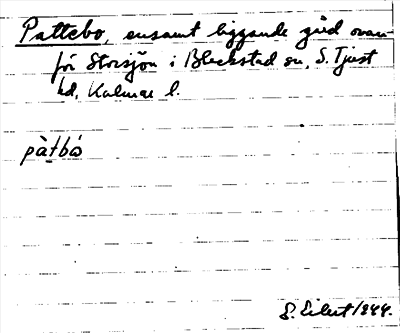 Pattebo, ensamt liggande gård ovan-
för Storsjön i Blackstad sn, S. Tjust
hd, Kalmar l.
pàtbó
S. Eilert 1944.